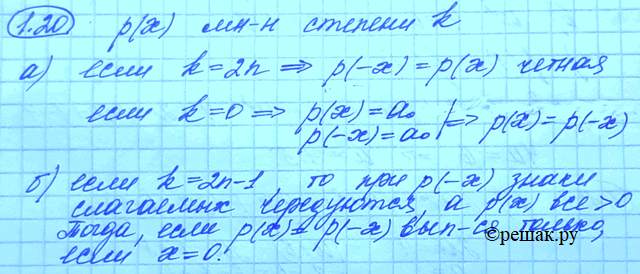 1.20 p(x) мн-н степени k
а) если k=2n ⇒ p(-x)=p(x) четная
если k=0 ⇒ p(x)=a₀
p(-x)=a₀ |⇒ p(x)=p(-x)
б) если k=2n-1, то при p(-x) знаки
слагаемых чередуются, а p(x) все >0
Тогда, если p(x)= p(-x) вып-ся только,
если x=0.
©решак.ру